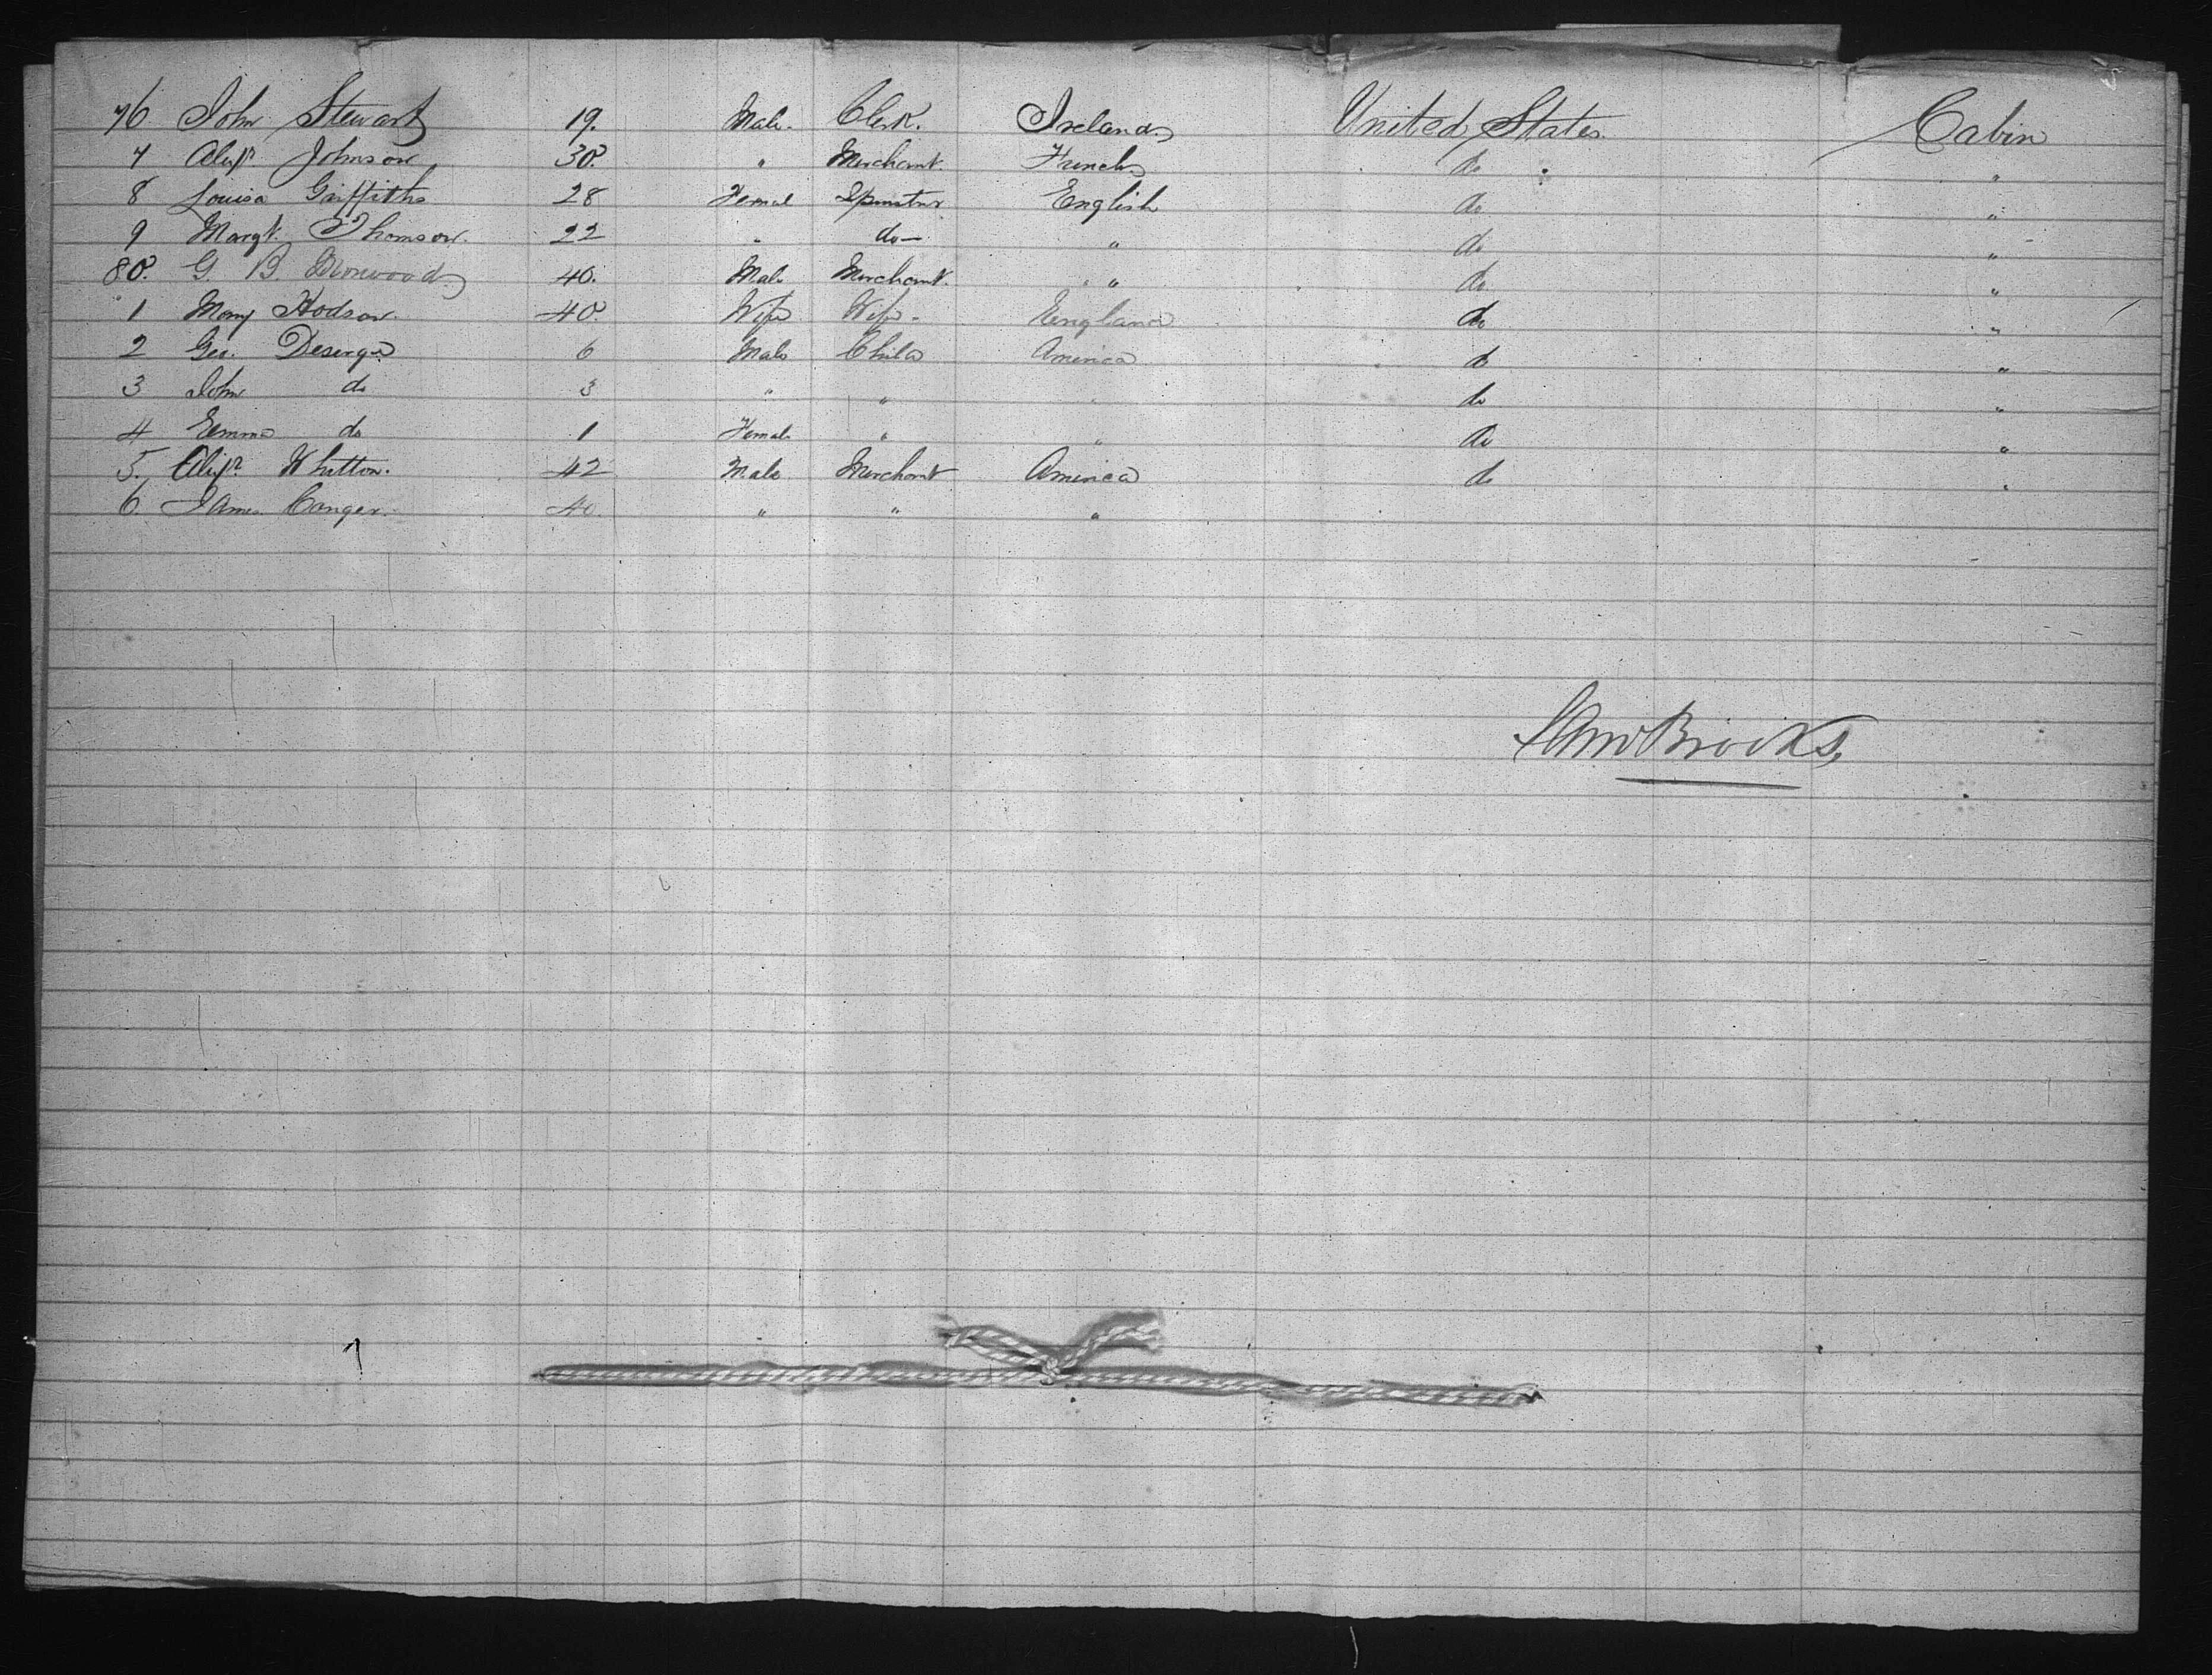 76 John Stewart 19. Male. Clerk. Ireland United States. Cabin
7 Alexr Johnson 30. " Merchant. French do "
8 Louisa Griffiths 28 Femal Spinster English do "
9 Margt. Thomson. 22 " do — " do "
80. G. B. 40. Male Merchant. " do "
1 Mary Hodson. 40. Wife Wife. England do "
2 Geo. 6 Male Child America do "
3 John do 3 " " " do "
4 Emma do 1 Female " " do "
5. Alexr. Whitton. 42 Male Merchant America do "
6. James Conger. 40. " " "
Brooks